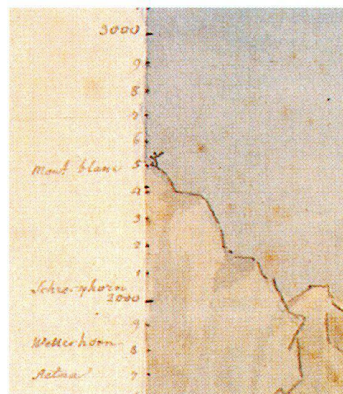 3000
9
8
7
6
5
Mont blanc
4
3
2
1
Schreckhorn
2000
9
Wetterhorn
8
Aetna
7